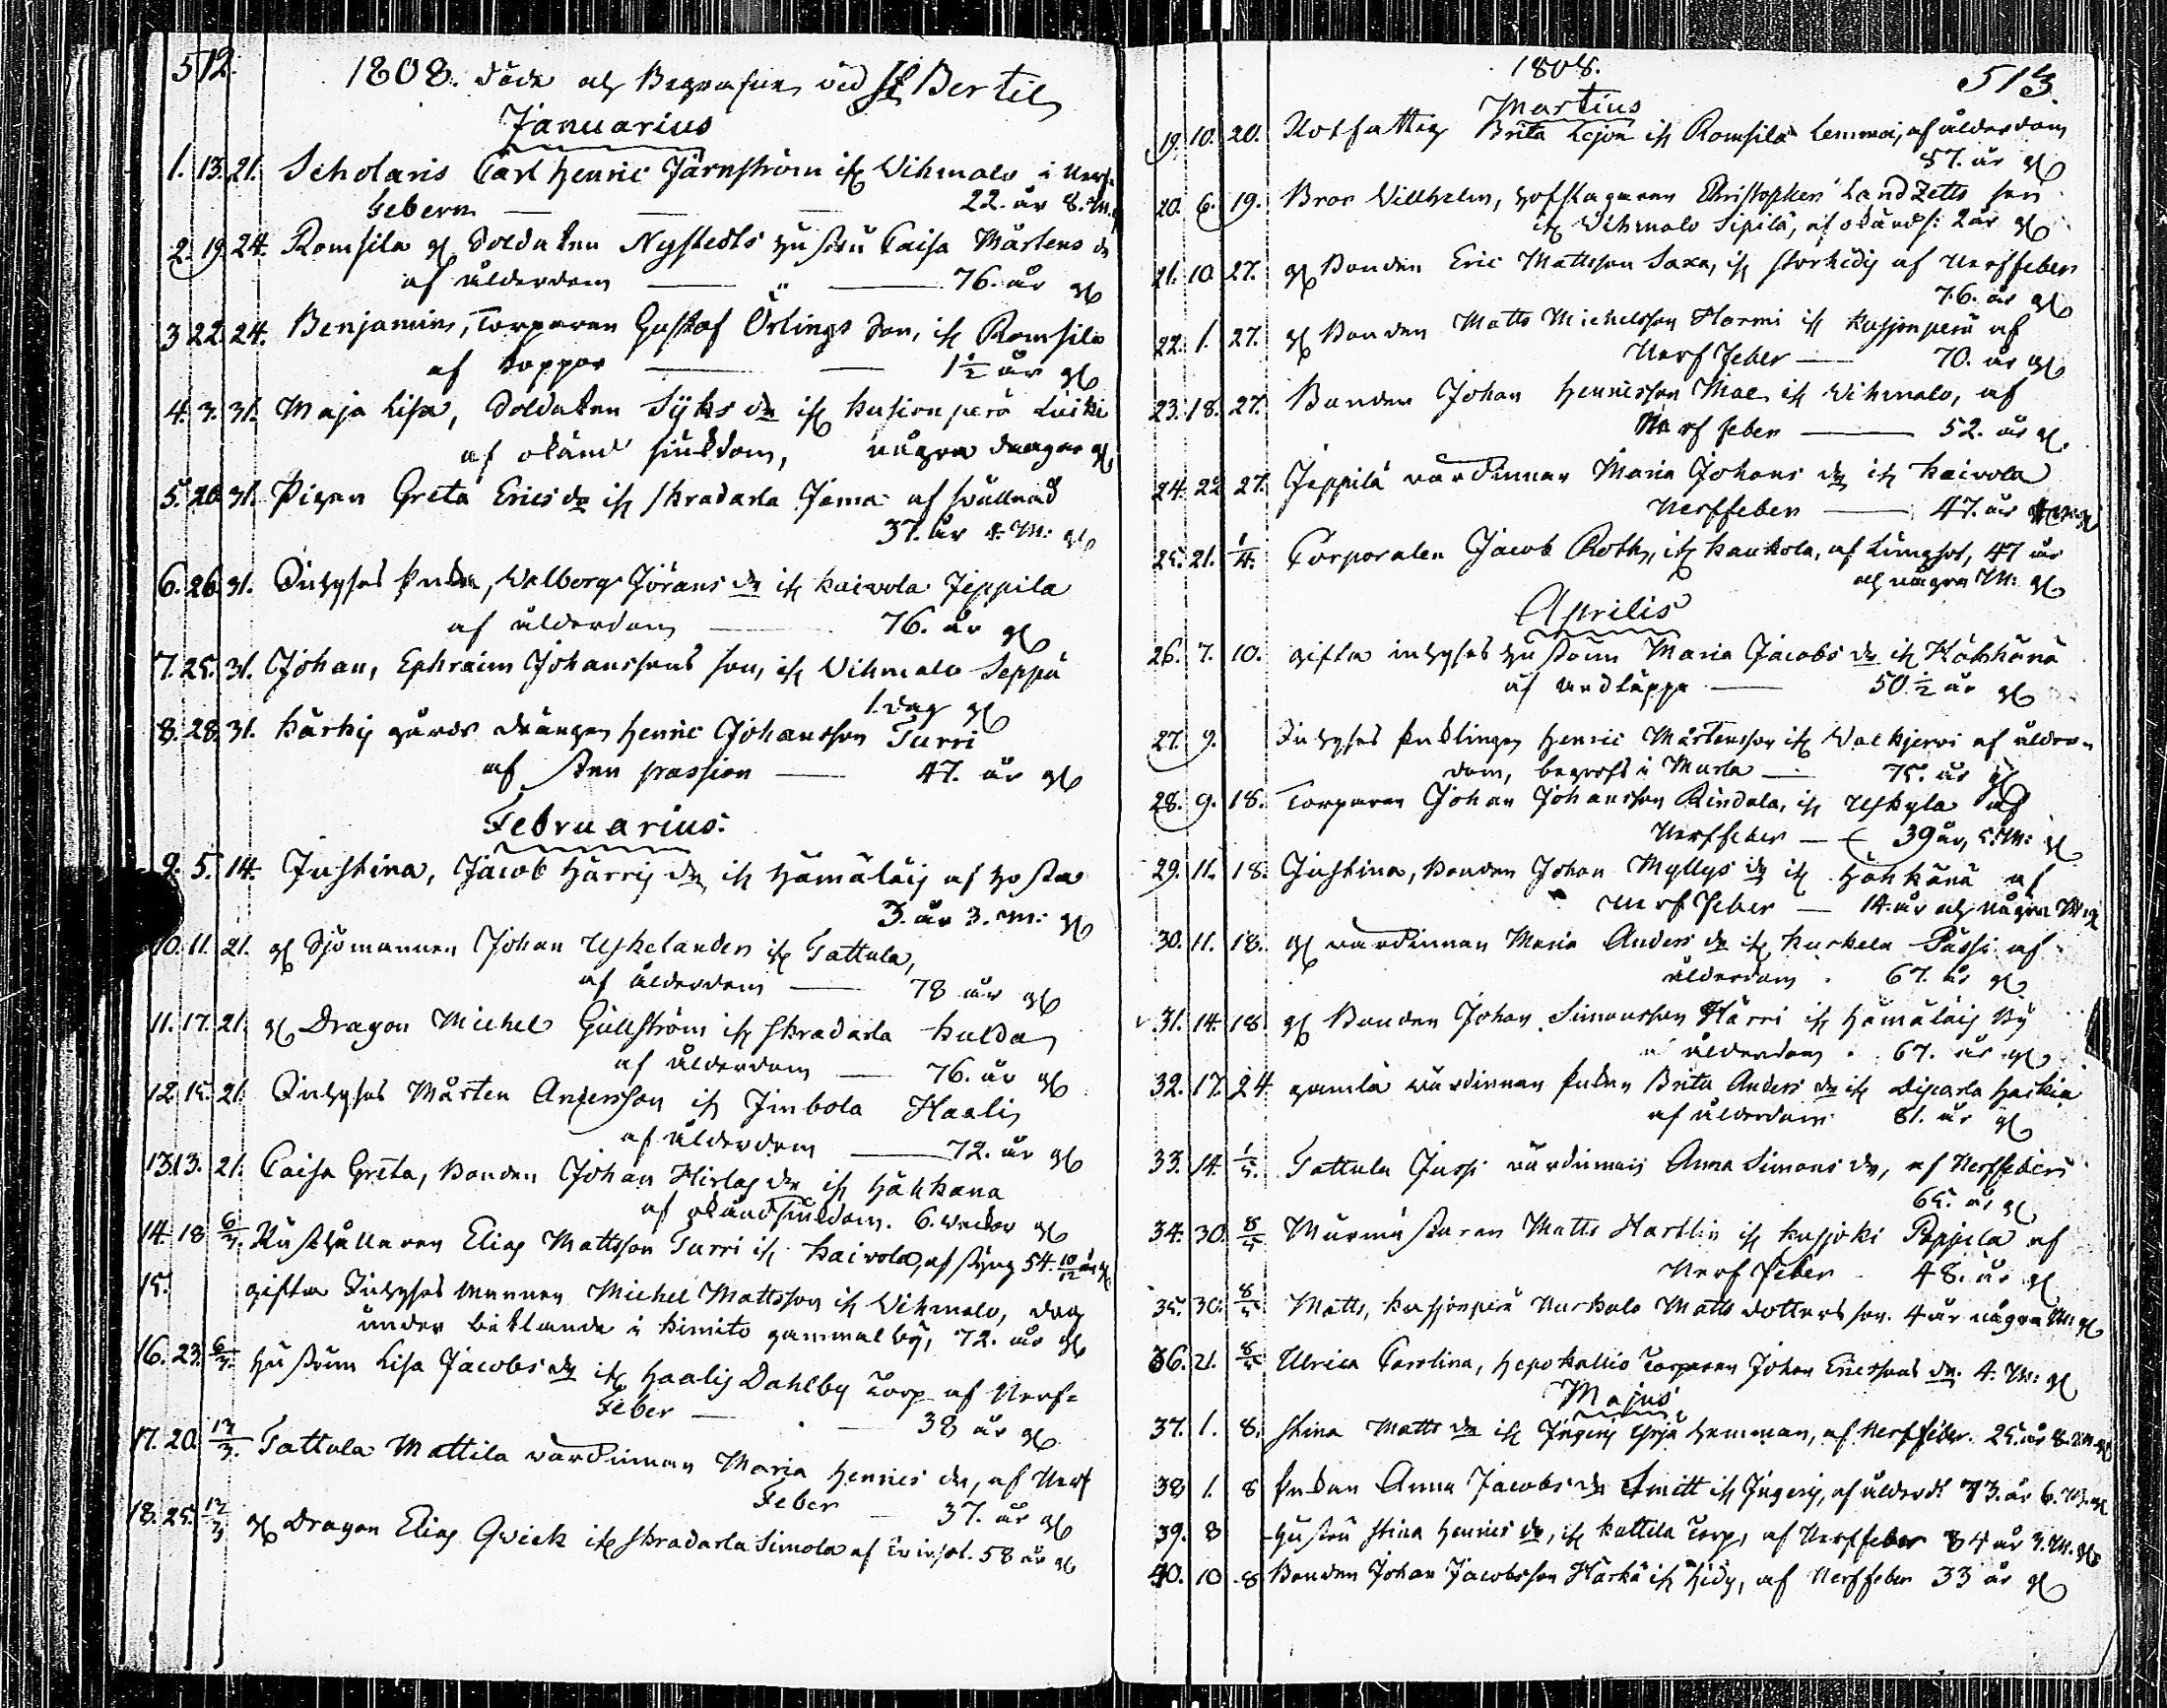 512.
1808. Döde och Begrafne vid St Bertil
Januarius
1. 13. 21. Scholaris Carl Henric Järnström ifr. Wihmalo i Nerf-
Febern — 22. år 8. M.
2. 19. 24. Romsila gl. Soldaten Nystedts hustru Caisa Mårtens dr
af ålderdom — 76. år
3. 22. 24. Benjamin, Torparen Gustaf Örlings Son, ifr. Romsila
af koppor — 1½ år
4. 3. 31. Maja Lisa, Soldaten Syks dr ifr. Kusionperä
af okänd siukdom, några dagar
5. 20. 31. Pigan Greta Erics dr ifr. Skradarla af svullnad
37. år 4. M:
6. 26. 31. Inhyses Enkan, Walborg Jörans dr ifr. Kaivola Jeppila
af ålderdom — 76. år
7. 25. 31. Johan, Ephraim Johanssons son, ifr. Wihmalo Seppä
1. dag
8. 28. 31. Härkij gårds drängen Henric Johansson Turri
af Sten passion — 47. år
Februarius.
9. 5. 14. Justina, Jacob Härris dr, ifr. Hämäläis af hosta
3. år 3. M:
10. 11. 21. gl. Sjömannen Johan Uskelander ifr. Tattula,
af ålderdom — 78 år
11. 17. 21. gl. Dragon Michel Gullström ifr. Skradarla Kulda
af ålderdom — 76. år
12. 15. 21. Inhyses Mårten Andersson ifr. Jinbola Haali
af ålderdom — 72. år
13. 13. 21. Caisa Greta, Bonden Johan Hirlas dr ifr. Häkkänä
af okänd siukdom. 6. veckor
14. 18 6/3. Rusthållaren Elias Mattsson Turri ifr. Kaivola, af styng 54. 10/12 år
15. gifta Inhyses mannen Michel Mattsson ifr. Wihmalo, dog
under betlande i Kimito gammalby, 72. år
16. 23. 6/3. hustrun Lisa Jacobs dr ifr. Haalis Dahlby Torp af Nerf-
Feber — 38 år
17. 20. 13/3. Tattula Mattila värdinnan Maria Henrics dr, af Nerf
Feber 37. år
18. 25. 13/3 gl. Dragon Elias Qvick ifr. Skradarla Simola af 58 år
1808.
513.
Martius
19. 10. 20. Rotfattig Brita Lejon ifr. Romsila Lemmoi, af ålderdom
87. år
20. 6. 19. Bror Willhelm, hofslagaren Christopher LandZetts son
ifr. Wihmalo Sipilä, af okänd s: 2 år
21. 10 27. gl. Bonden Eric Mattsson Saxa, ifr. Storhidij af Nerffeber
76. år
22. 1. 27. gl. Bonden Matts Michelsson Harmi ifr. Kusjonperä af
Nerf Feber — 70. år
23. 18. 27. Bonden Johan Henricsson Mae ifr. Wihmalo, af
Nerf feber — 52. år
24. 22 27. Jeppilä värdinnan Maria Johans dr ifr. Kaivola
Nerffeber — 47. år
25. 21. 1/4. Corporalen Jacob Roth, ifr. Kaukola, af Lungsot, 47 år
och några M:
Aprilis
26. 7. 10. gifta inhyses hustrun Maria Jacobs dr ifr. Häkkänä
af andtäppa — 50½ år
27. 9. Inhyses Enklingen Henric Mårtensson ifr. Walkjervi af ålder-
dom, begrofs i Murla — 75. år
28. 9. 18. Torparen Johan Johansson Rindala, ifr. Uskyla af
Nerffeber — 39 år, 5. M:
29. 11. 18. Justina, Bonden Johan Myllys dr ifr. Häkkänä af
Nerf Feber — 14. år och några M:
30. 11. 18. gl. värdinnan Maria Anders dr ifr. Kurkela Pässi af
ålderdom. 67. år
31. 14. 18. gl. Bonden Johan Simonsson Härri ifr. Hämäläis by
ålderdom. 67. år
32. 17. 24 gamla värdinnan Enkan Brita Anders dr ifr.
af ålderdom 81. år
33. 14. 1/5. Tattula Jussi värdinnan Anna Simons dr, af Nerffeber
65. år
34. 30. 8/5 Murmästaren Matts Hartlin ifr. Kusjoki Pappila af
Nerf Feber 48. år
35. 30. 8/5 Matts, Kusjonperä Matts dotters son. 4 år några M:
36. 21. 8/5 Ulrica Carolina, Hepokallio Torparen Johan Ericssons dr. 4. M:
Majus
37. 1. 8. Stina Matts dr ifr. Ingeris Yrjä Hemman, af Nerffeber. 25. år 8. M
38 1. 8 Enkan Anna Jacobs dr Smitt ifr. Ingeris, af ålderd: 73. år 6. M.
39. 8 Hustru Stina Henrics dr, ifr. Kattila Torp, af Nerffeber 34 år 3. M.
40. 10. 8 Bonden Johan Jacobsson Harkä ifr. Hidy, af Nerffeber 33 år